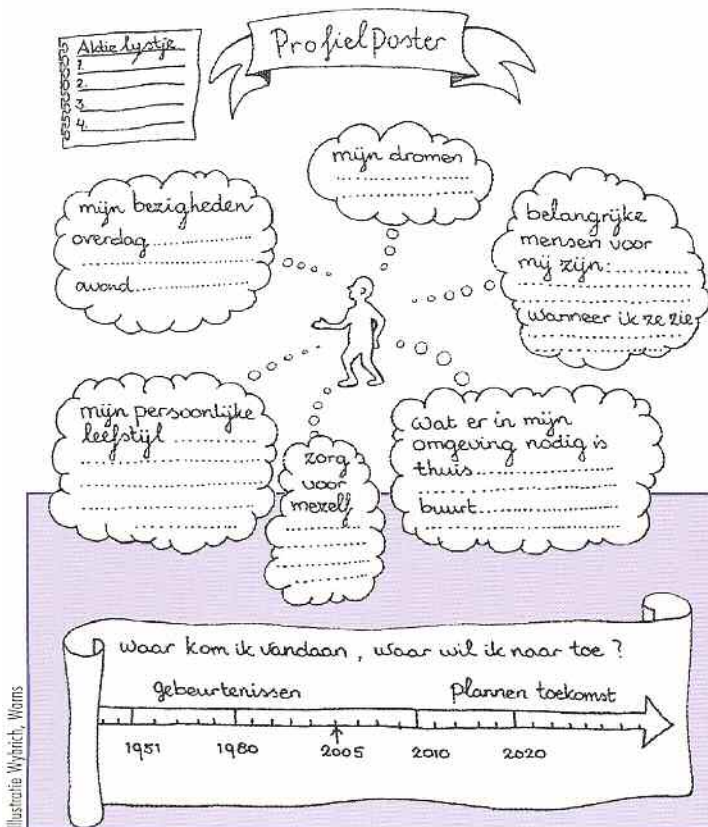 Profielposter
Aktielijstje
1.
2.
3.
4.
mijn dromen
mijn bezigheden
overdag
avond
belangrijke
mensen voor
mij zijn:
wanneer ik ze zie
mijn persoonlijke
leefstijl
zorg
voor
mezelf
wat er in mijn
omgeving nodig is
thuis
buurt
waar kom ik vandaan, waar wil ik naar toe?
gebeurtenissen
plannen toekomst
1951 1980 2005 2010 2020
Illustratie Wybrich, Warns